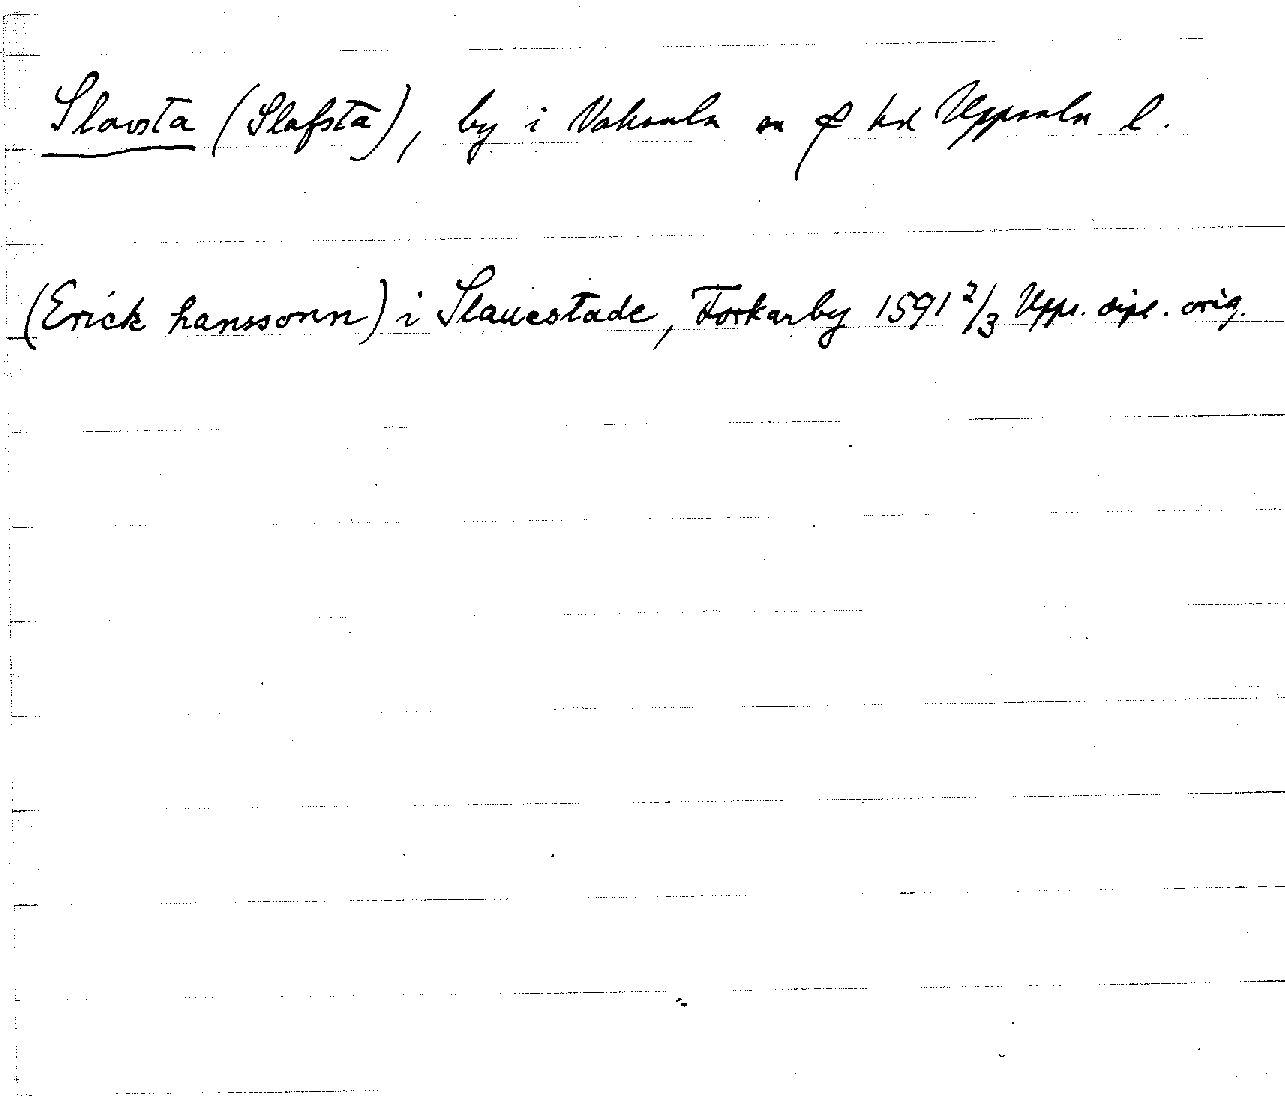 Slavsta (Slafsta), by i Vaksala sn o hd Uppsala l.
(Erick hanssonn) i Slauestade, Forkarby 1591 2/3 Upps. dipl. orig.